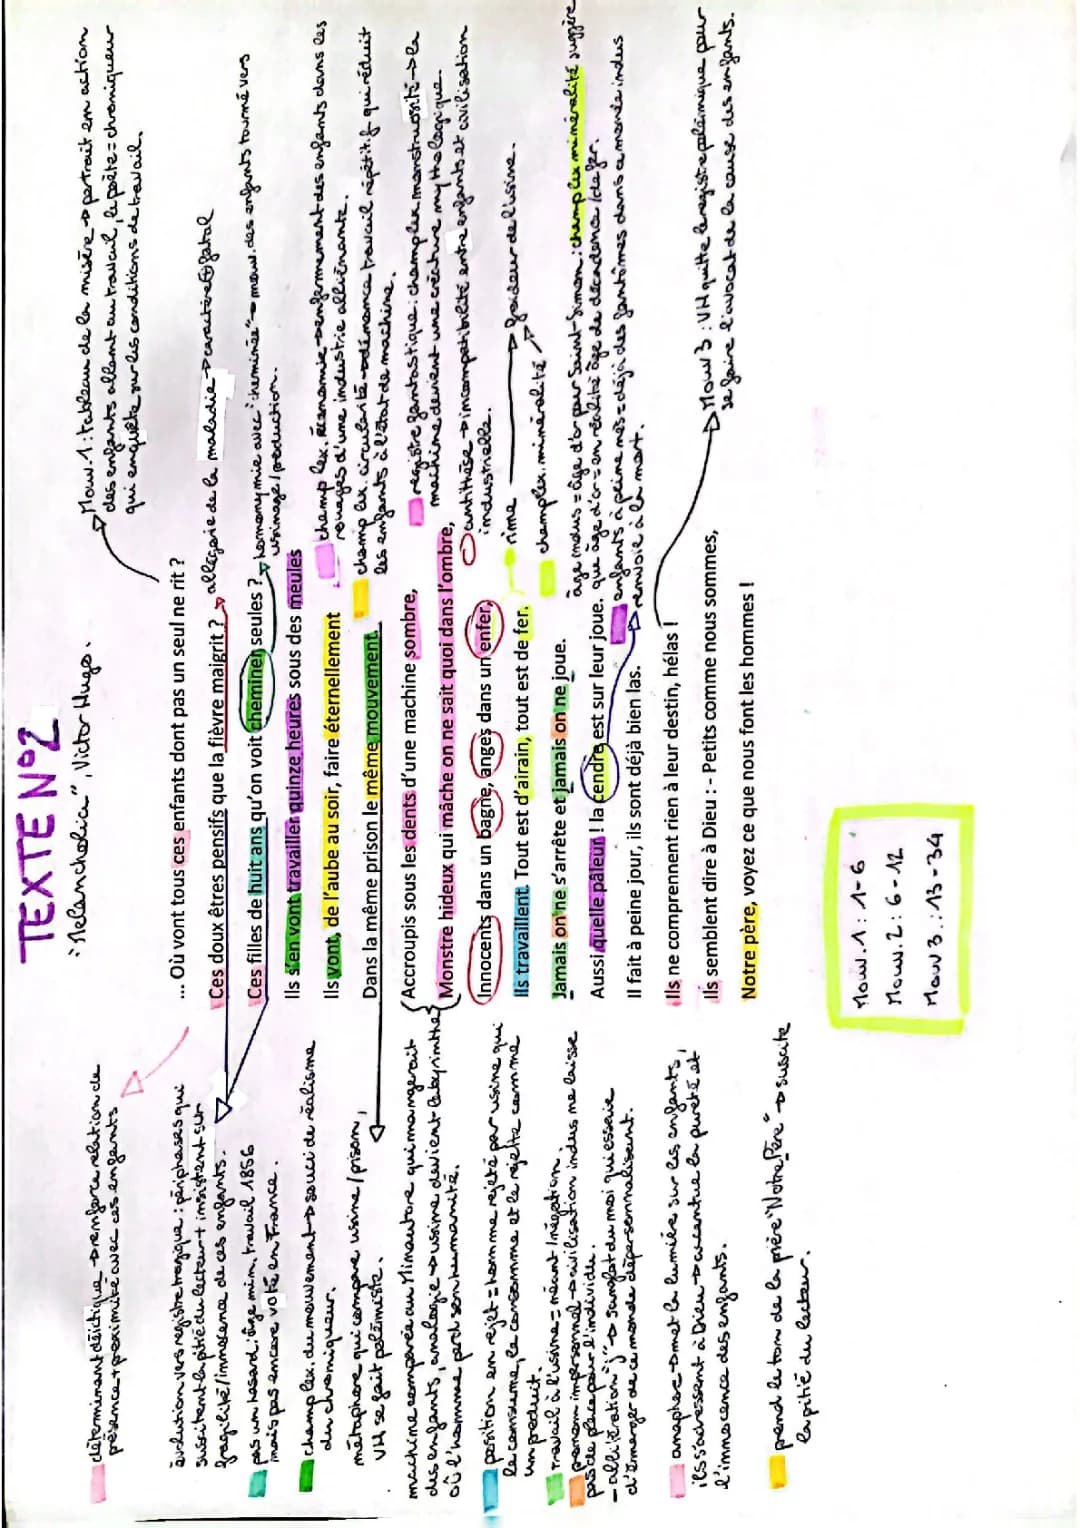 TEXTE N°2
"Melancholia", Victor Hugo.
Mouv. 1 : tableau de la misère → portrait en action
des enfants allant au travail, le poète = chroniqueur
qui enquête sur les conditions de travail.
... Où vont tous ces enfants dont pas un seul ne rit ?
Ces doux êtres pensifs que la fièvre maigrit ?
Ces filles de huit ans qu'on voit cheminer seules ?
Ils s'en vont travailler quinze heures sous des meules
Ils vont, de l'aube au soir, faire éternellement
Dans la même prison le même mouvement.
Accroupis sous les dents d'une machine sombre,
Monstre hideux qui mâche on ne sait quoi dans l'ombre,
Innocents dans un bagne, anges dans un enfer,
Ils travaillent. Tout est d'airain, tout est de fer.
Jamais on ne s'arrête et jamais on ne joue.
Aussi quelle pâleur ! la cendre est sur leur joue.
Il fait à peine jour, ils sont déjà bien las.
Ils ne comprennent rien à leur destin, hélas !
Ils semblent dire à Dieu : - Petits comme nous sommes,
Notre père, voyez ce que nous font les hommes !
allégorie de la maladie → caractère ⊕ fatal
homonymie avec "cheminée" → mouv. des enfants tourné vers
usinage/production.
champ lex. → enfermement des enfants dans les
rouages d'une industrie alliénante.
champ lex. circularité → démence travail répétitif qui réduit
les enfants à l'état de machine.
registre fantastique : champ lex monstruosité → la
machine devient une créature mythologique.
antithèse → incompatibilité entre enfants et civilisation
industrielle.
rime → froideur de l'usine.
champ lex. minéralité
âge indus = âge d'or pour Saint-Simon : champ lex minéralité suggère
que âge d'or = en réalité âge de décadence/de fer.
enfants à peine nés = déjà des fantômes dans ce monde indus
renvoie à la mort.
Mouv 3 : VH quitte le registre polémique pour
se faire l'avocat de la cause des enfants.
déterminant déictique → renforce relation de
présence + proximité avec ces enfants
évolution vers registre tragique : périphrases qui
suscitent la pitié du lecteur + insistent sur
fragilité/innocence de ces enfants.
pas un hasard : âge min. travail 1856
mais pas encore voté en France.
champ lex. du mouvement → souci de réalisme
du chroniqueur.
métaphore qui compare usine/prison,
VH se fait polémiste.
machine comparée au Minautore qui mangerait
des enfants, analogie → usine devient labyrinthe
où l'homme perd son humanité.
position en rejet = homme rejeté par usine qui
le consume, le consomme et le rejette comme
un produit.
travail à l'usine = néant/négation.
pronom impersonnel → civilisation indus ne laisse
pas de place pour l'individu.
- allitération "j" → sursaut du moi qui essaie
d'émerger de ce monde dépersonnalisant.
anaphore → met la lumière sur les enfants,
ils s'adressent à Dieu → accentue la pureté et
l'innocence des enfants.
prend le ton de la prière "Notre Père" → suscite
la pitié du lecteur.
Mouv. 1 : 1-6
Mouv. 2 : 6-12
Mouv 3 : 13-34